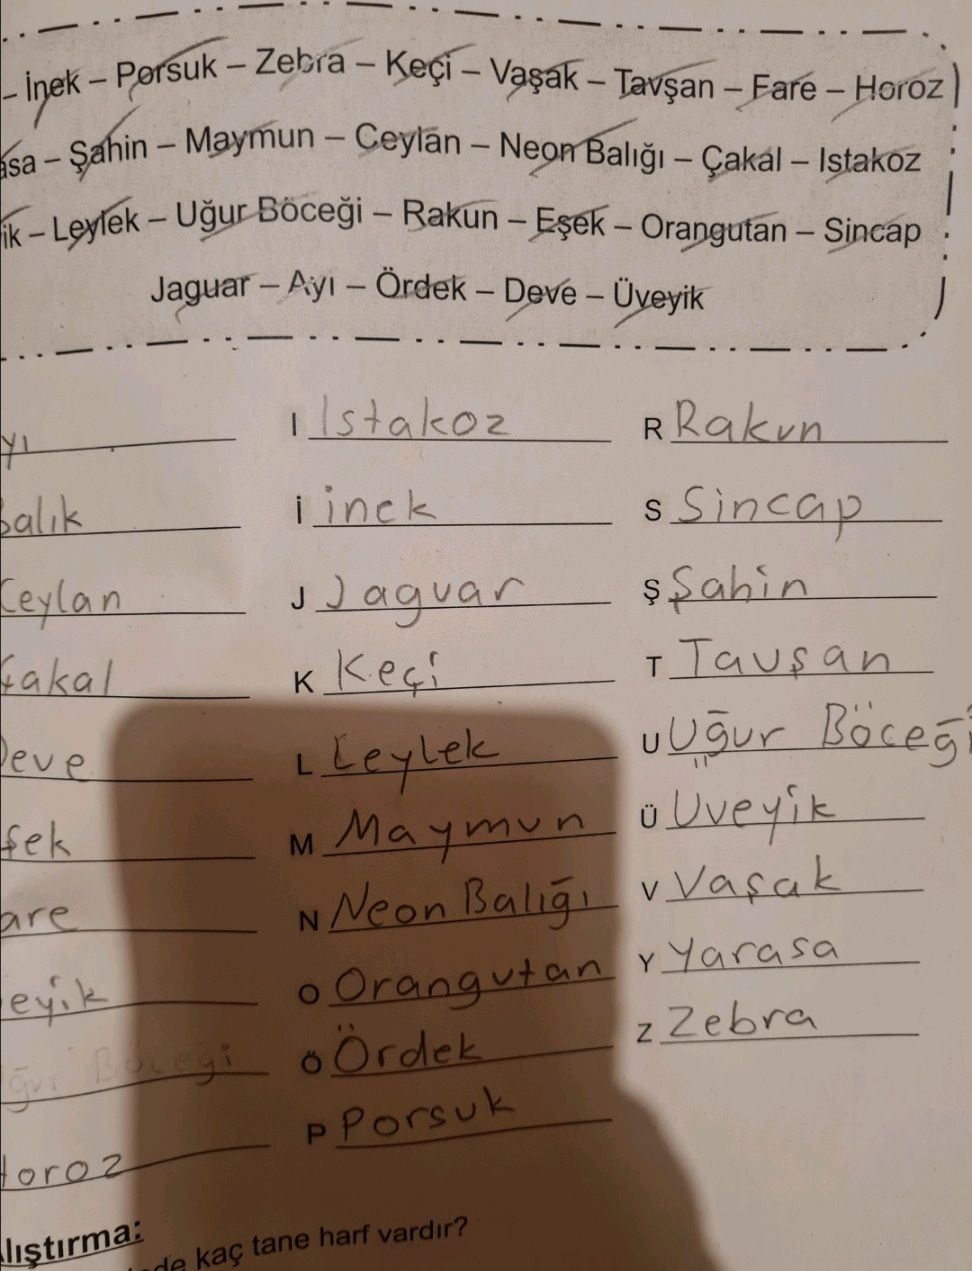 – İnek – Porsuk – Zebra – Keçi – Vaşak – Tavşan – Fare – Horoz
asa – Şahin – Maymun – Ceylan – Neon Balığı – Çakal – Istakoz
ik – Leylek – Uğur Böceği – Rakun – Eşek – Orangutan – Sincap
Jaguar – Ayı – Ördek – Deve – Üveyik
yı
balık
Ceylan
Çakal
Deve
şek
are
eyik
ğur Böceği
Horoz
I Istakoz
İ inek
J Jaguar
K Keçi
L Leylek
M Maymun
N Neon Balığı
O Orangutan
Ö Ördek
P Porsuk
R Rakun
S Sincap
Ş Şahin
T Tavşan
U Uğur Böceği
Ü Üveyik
V Vaşak
Y Yarasa
Z Zebra
lıştırma:
de kaç tane harf vardır?